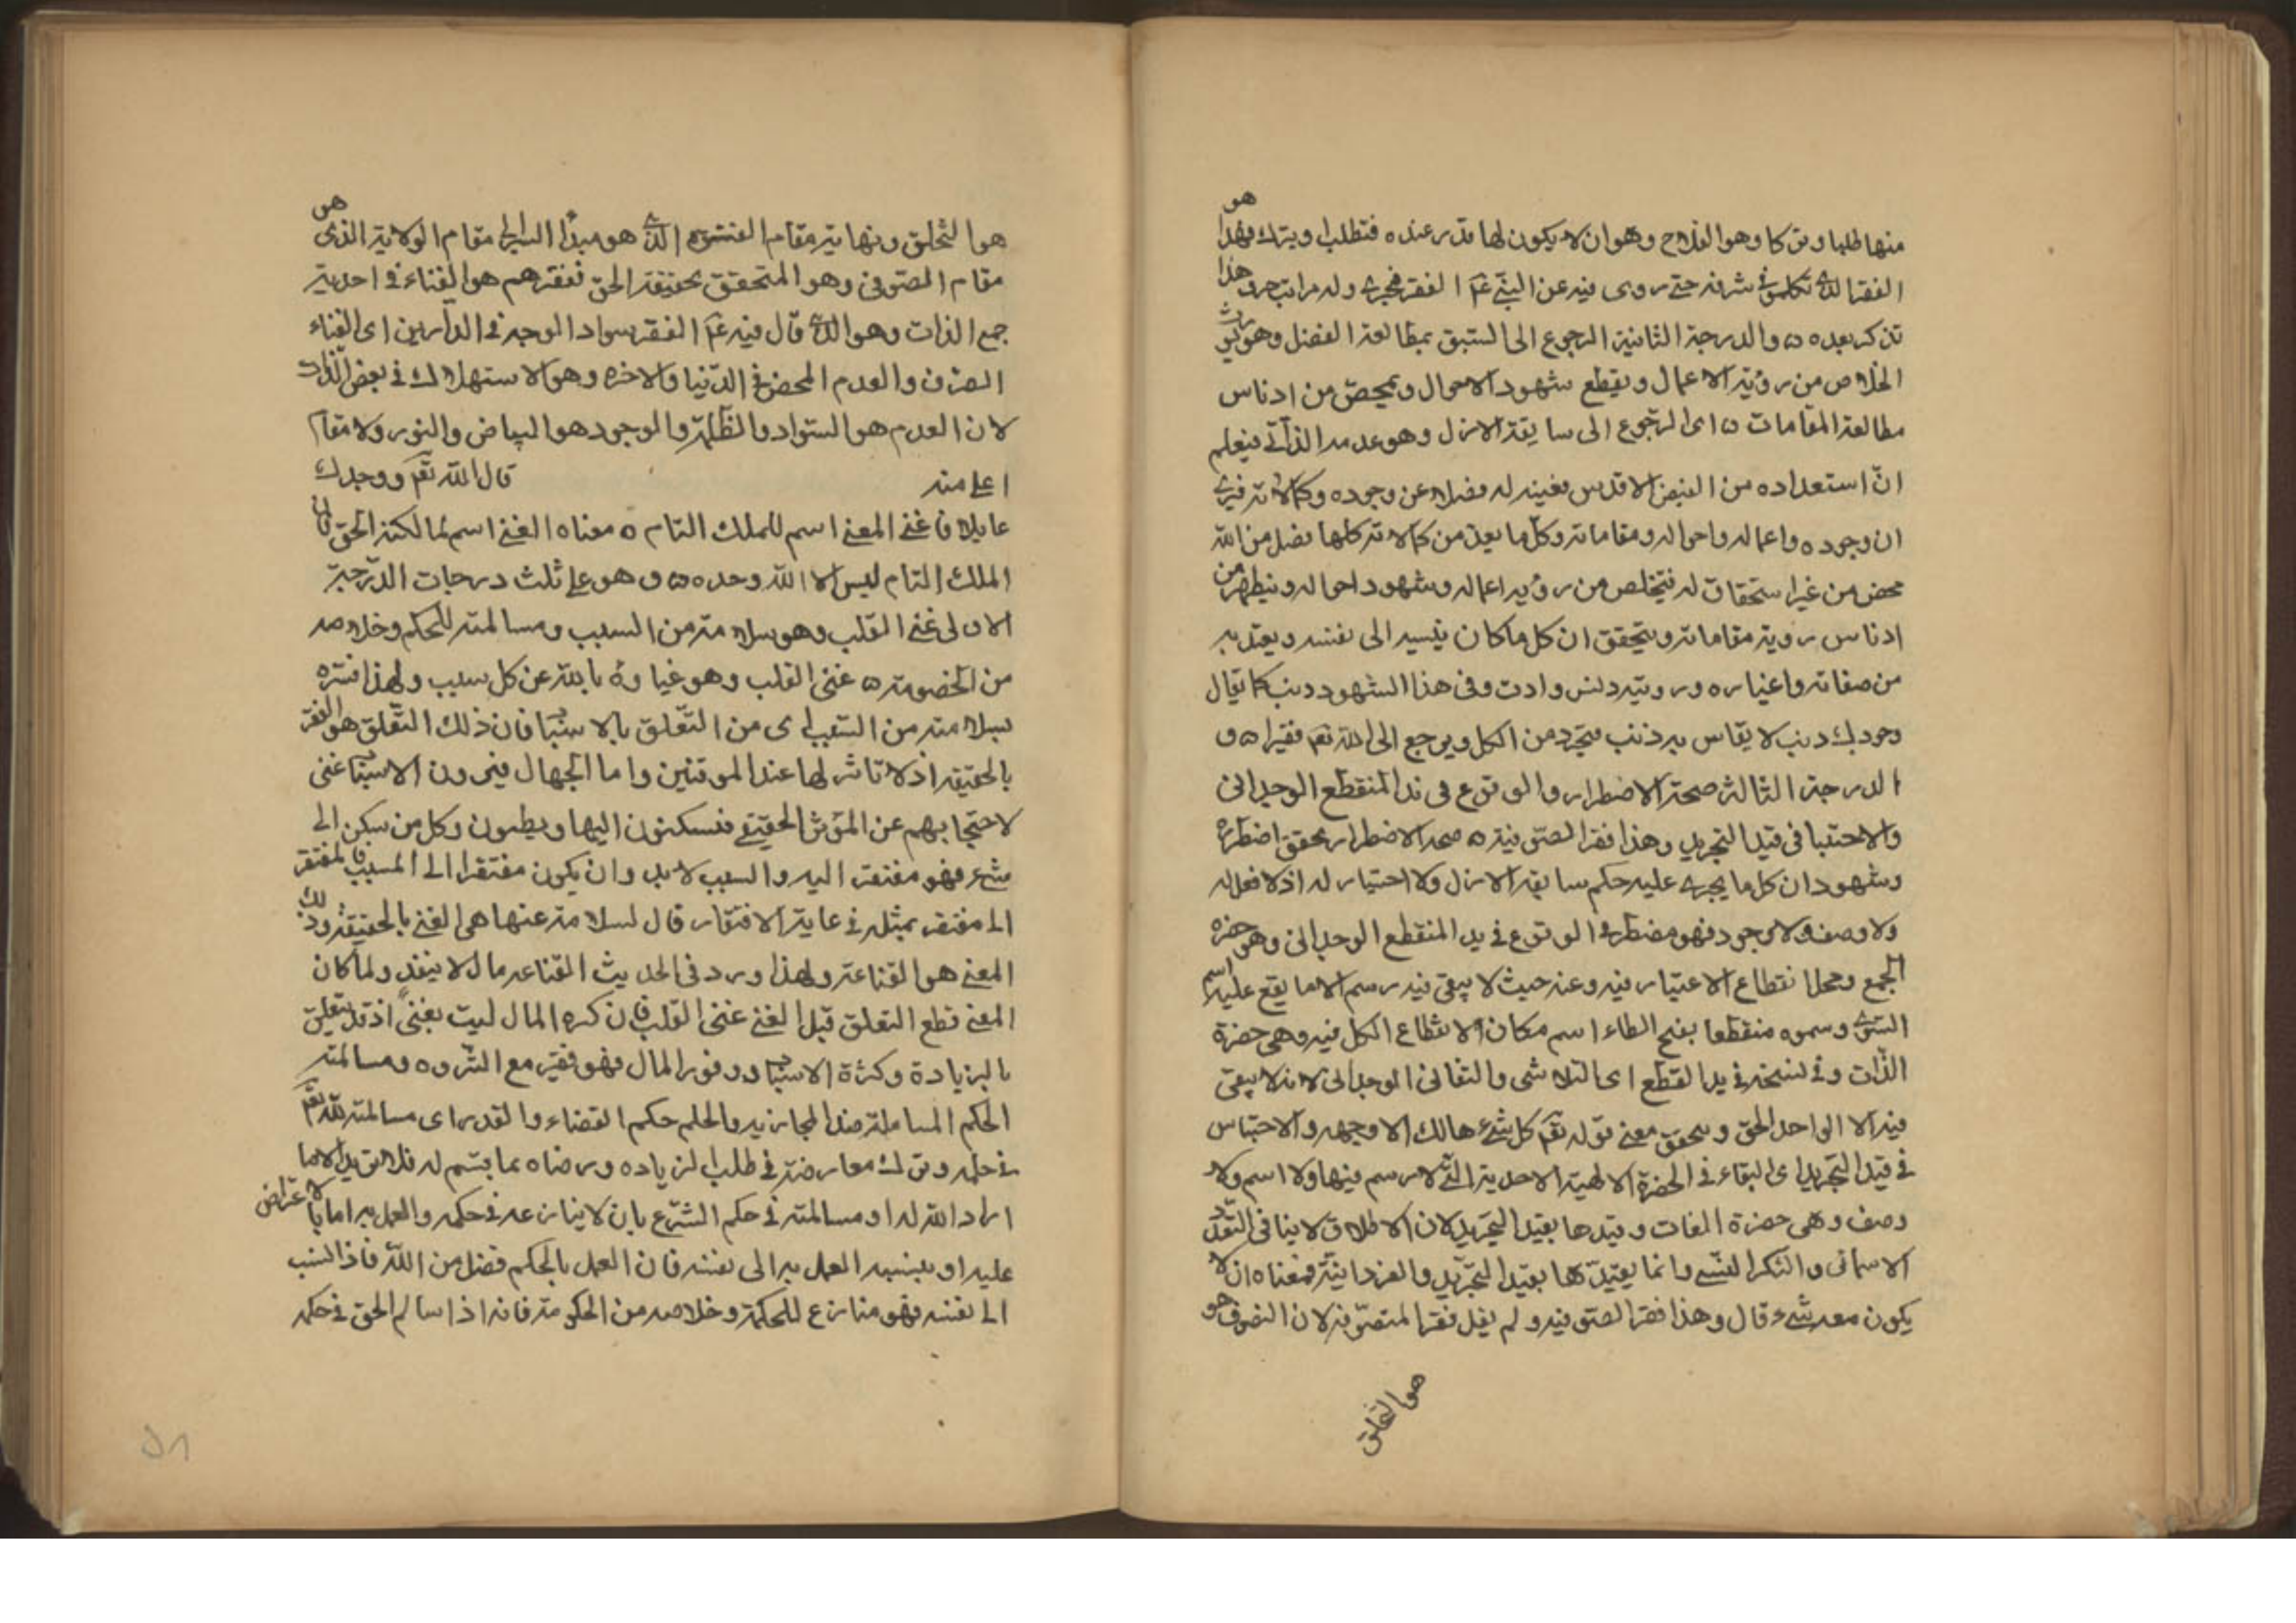 منها طلبا وتركا وهو الفلاح وهو ان لا يكون لها قدر عنده فتطلب او يترك فهذا هو
الفقر الذي تكلموا في شرفه حتى روى فيه عن النبي عم الفقر فخري وله مراتب هذا
تذكر بعده ٥ والدرجة الثانية الرجوع الى السبق بمطالعة الفضل وهو يورث
الخلاص من رؤية الاعمال ويقطع شهود الاحوال ويمحص من ادناس
مطالعة المقامات ٥ اى الرجوع الى سابقة الازل وهو عدمه الذاتي فيعلم
ان استعداده من الفيض الاقدس بعينه له فضلا عن وجوده وكمالاته فيرى
ان وجوده واعماله واحواله ومقاماته وكل ما يعد من كمالاته كلها فضل من الله
محض من غير استحقاق له فيتخلص من رؤية اعماله وشهود احواله ويتطهر من
ادناس روية مقاماته ويتحقق ان كل ما كان ينسبه الى نفسه ويعتد به
من صفاته واعنياره ورويته دنس وادت وفى هذا الشهود دنب كما يقال
وجودك دنب لا يقاس به ذنب فيتجرد من الكل ويرجع الى الله تعم فقيرا ٥ و
الدرجة الثالثة صحة الاضطرار والوقوع فى يد المنقطع الوحدانى
والاحتباس فى قيد التجريد وهذا فقر الصوفية ٥ صحة الاضطرار تحقق اضطراره
وشهود ان كل ما يجرى عليه حكم سابقة الازل ولا اختيار له اذ لا فعل له
ولا وصف ولا وجود فهو مضطر فى الوقوع فى يد المنقطع الوحدانى وهو حضرة
الجمع ومحل انقطاع الاعتبار فيه وعند حيث لا يبقى فيه رسم الا ما يقع عليه اسم
السوى وسموه منقطعا بفتح الطاء اسم مكان الانقطاع الكل فيه وهى حضرة
الذات وفى نسخة فى يد القطع اى التلاشى والتفانى الوحدانى لانه لا يبقى
فيه الا الواحد الحق وتحقق معنى قوله تعم كل شئ هالك الا وجهه والاحتباس
فى قيد التجريد اى البقاء فى الحضرة الالهية الاحدية التى لا رسم فيها ولا اسم ولا
وصف وهى حضرة الذات وقيدها بقيد التجريد لان الاطلاق لا ينافى التعدد
الاسمائى والتكثر النسبى وانما يقيدها بقيد التجريد والفردانية فمعناه ان لا
يكون معه شئ وقال وهذا فقر الصوفية ولم يقل فقر المتصوفة لان التصوف هو
هو التخلق
هو التخلق ونهاية مقام الفتوة الذي هو مبدأ السير الى مقام الولاية الذى هو
مقام الصوفى وهو المتحقق بحقيقة الحق ففقرهم هو الفناء فى احدية
جمع الذات وهو الذي قال فيه عم الفقر سواد الوجه فى الدارين اى الفناء
الصرف والعدم المحض فى الدنيا والاخره وهو الاستهلاك فى بعض الذات
لان العدم هو السواد والظلمة والوجود هو البياض والنور ولا مقام
اعلى منه قال الله تعم ووجدك
عايلا فاغنى المعنى اسم للملك التام ٥ معناه الغنى اسم لمالكية الحق فان
الملك التام ليس الا الله وحده ٥ وهو على ثلث درجات الدرجة
الاولى غنى القلب وهو سلامته من السبب ومسالمته للحكم وخلاصه
من الخصومة ٥ غنى القلب وهو غناؤه بالله عن كل سبب ولهذا فسره
بسلامته من السبب اى من التعلق بالاسباب فان ذلك التعلق هو الفقر
بالحقيقة اذ لا تاثير لها عند الموقنين واما الجهال فيرون الاسباب غنى
لاحتجابهم عن المؤثر الحقيقى فيسكنون اليها ويطمئنون وكل من سكن الى
شئ فهو مفتقر اليه والسبب لا بد وان يكون مفتقرا الى المسبب فالمفتقر
الى مفتقر بمثله فى غاية الافتقار قال لسلامة عنها هى الغنى بالحقيقة وذلك
المعنى هو القناعة ولهذا ورد فى الحديث القناعة مال لا ينفد ولما كان
المعنى قطع التعلق قيل الغنى غنى القلب فان كثرة المال ليست بغنى اذ قد يتعلق
بالزيادة وكثرة الاسباب ووفور المال فهو فقير مع الثروه ومسالمته
الحكم المسالمة ضد المحاربه والحكم حكم القضاء والقدر اى مسالمته لله تعم
فى حكمه وترك معارضته فى طلب الزياده ورضاه بما يقسم له فلا يريد الا ما
اراد الله له او مسالمته فى حكم الشرع بان لا ينازعه فى حكمه والعمل به اما بالاعتراض
عليه او بنسبة العمل به الى نفسه فان العمل بالحكم فضل من الله فاذا نسب
الى نفسه فهو منازع للحكمة وخلاصه من الحكومة فانه اذا سالم الحق فى حكمه